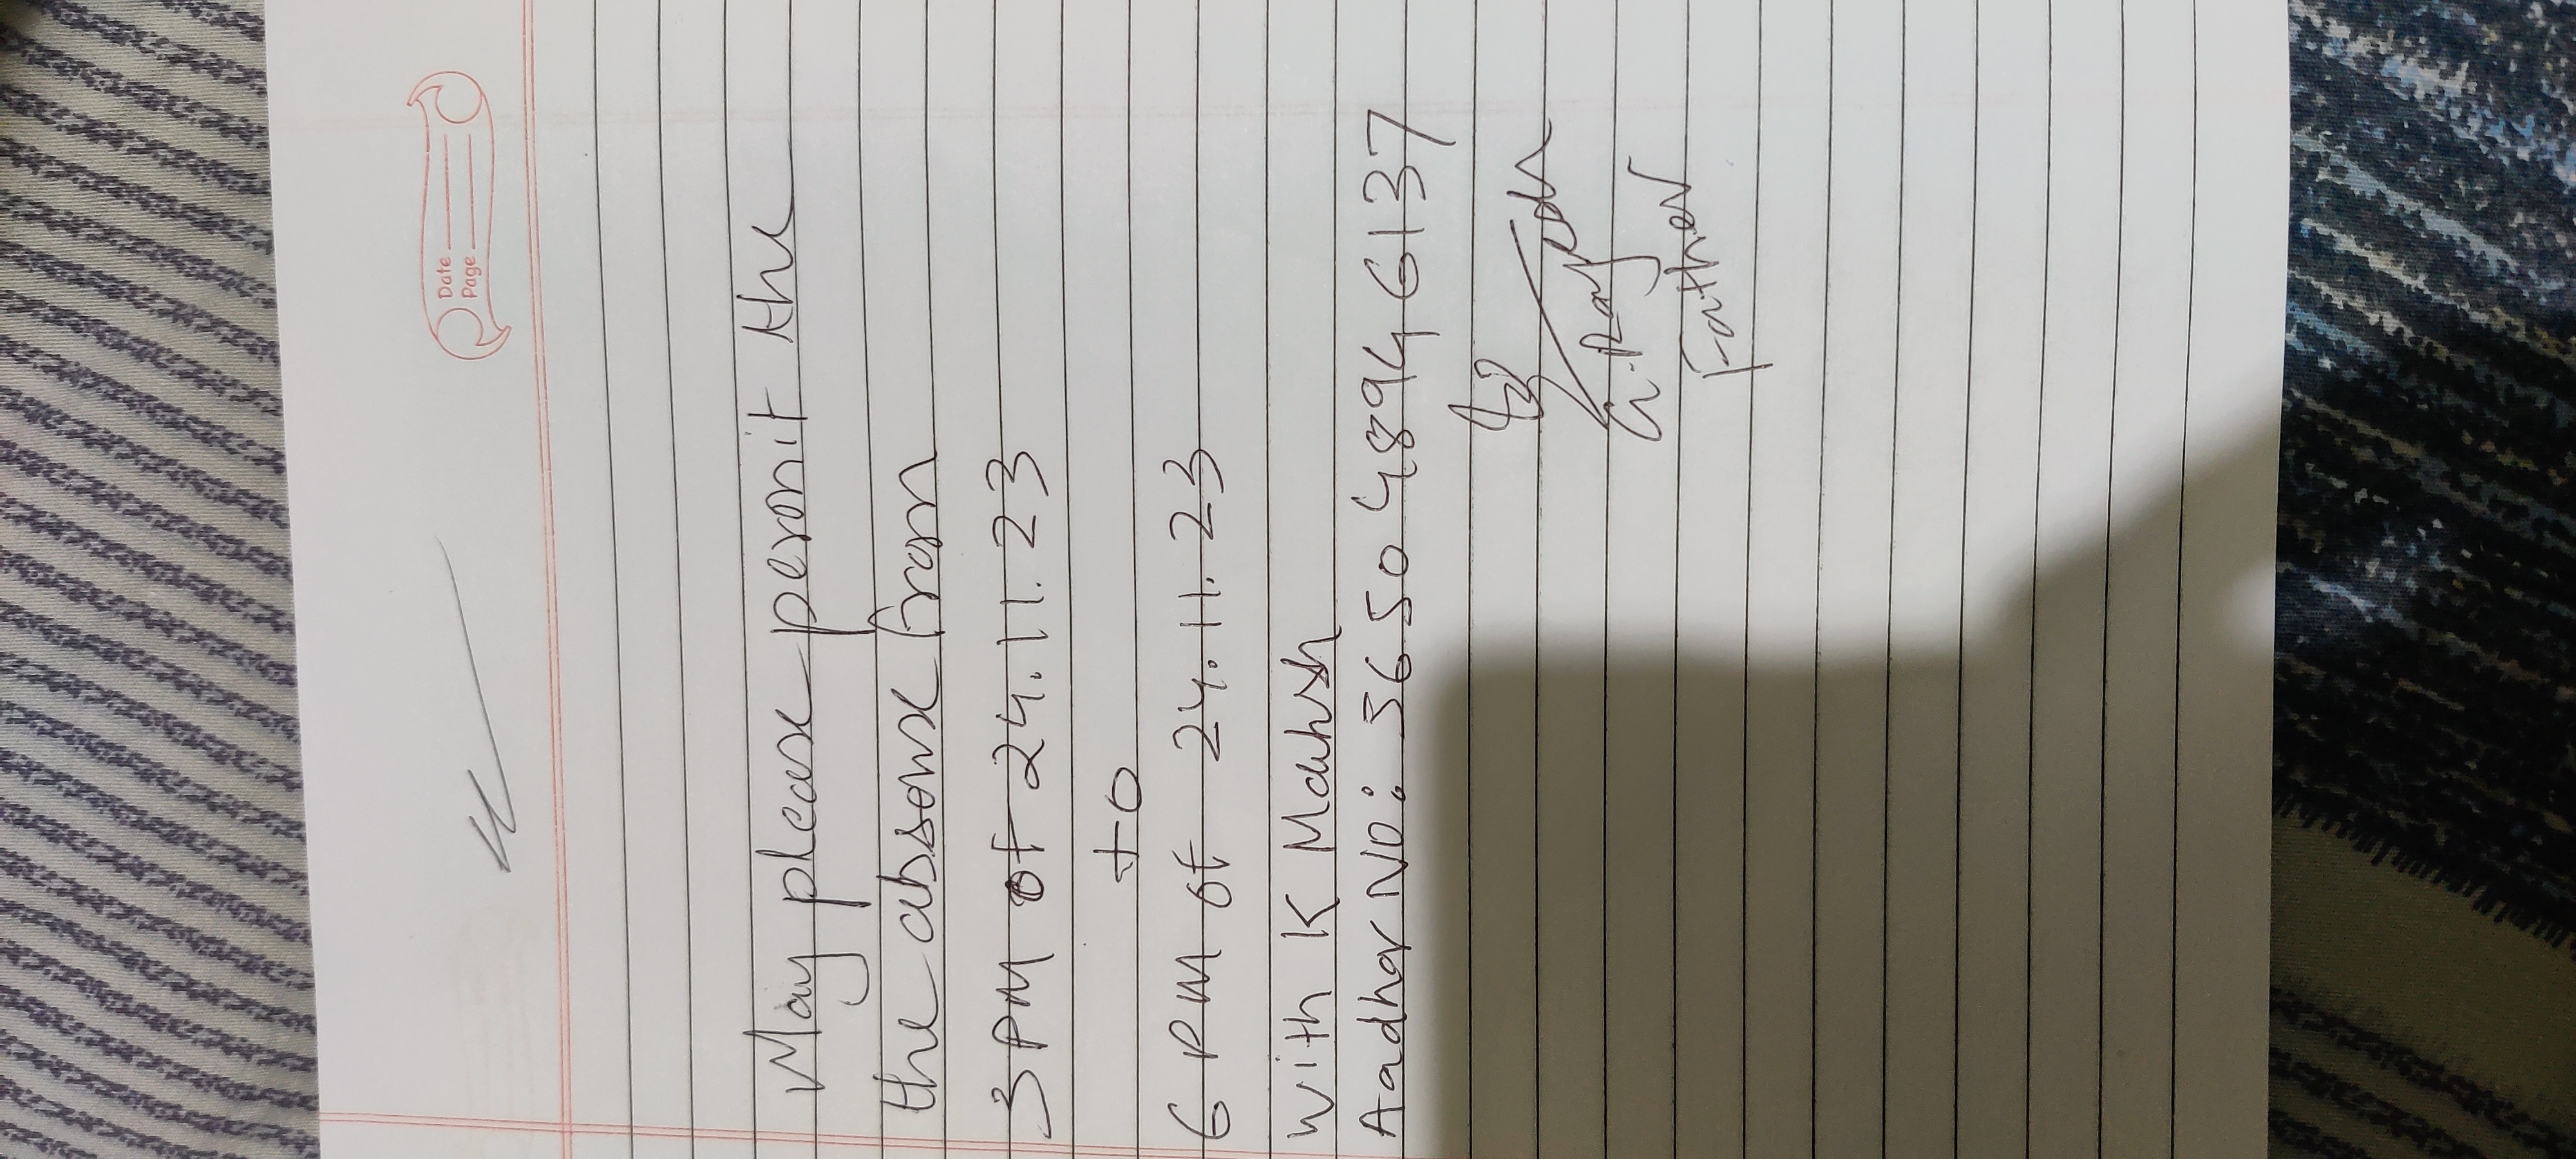 Date
Page
May please permit the
the absense from
3 PM of 24.11.23
to
6 PM of 24.11.23
With K Mahesh
Aadhar No: 3650 4894 6137
Father